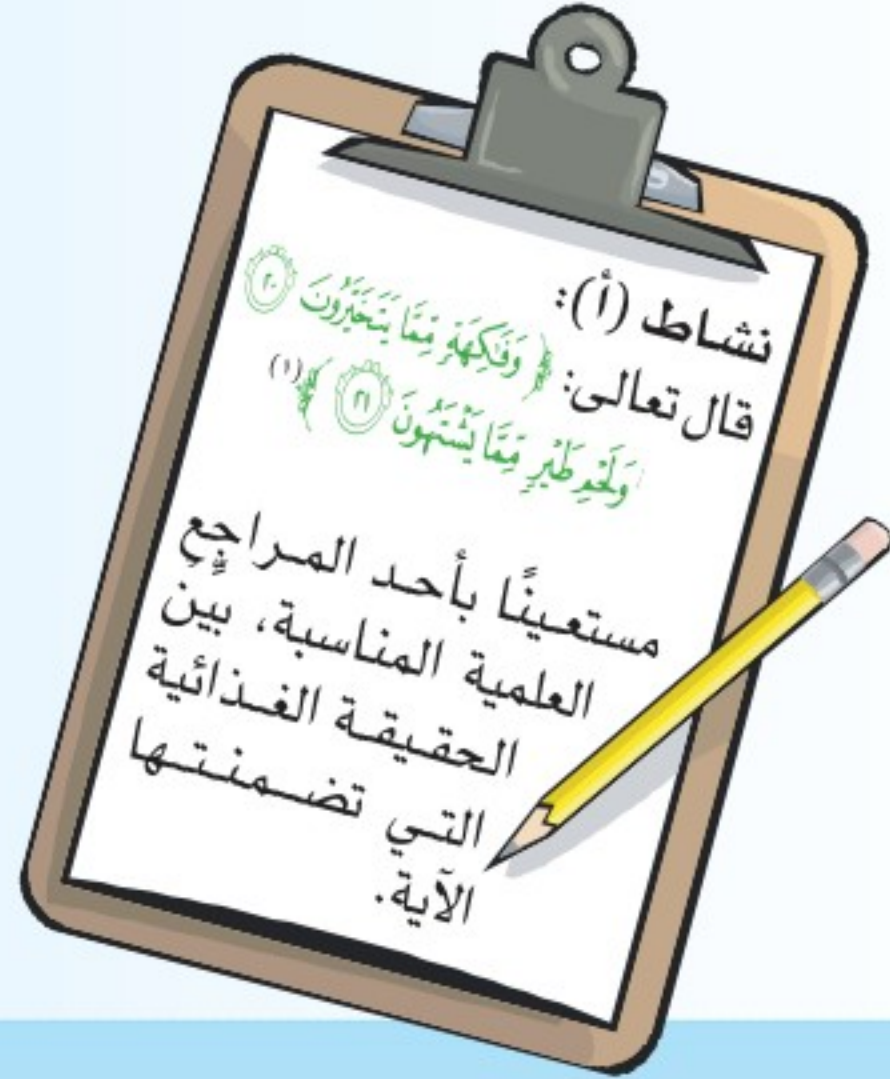 نشاط (أ):
قال تعالى: ﴿ وَفَٰكِهَةٍ مِّمَّا يَتَخَيَّرُونَ ٢٠
وَلَحْمِ طَيْرٍ مِّمَّا يَشْتَهُونَ ٢١ ﴾(١)
مستعينًا بأحد المراجِعِ
العلمية المناسبة، بين
الحقيقة الغذائية
التي تضمنتها
الآية.